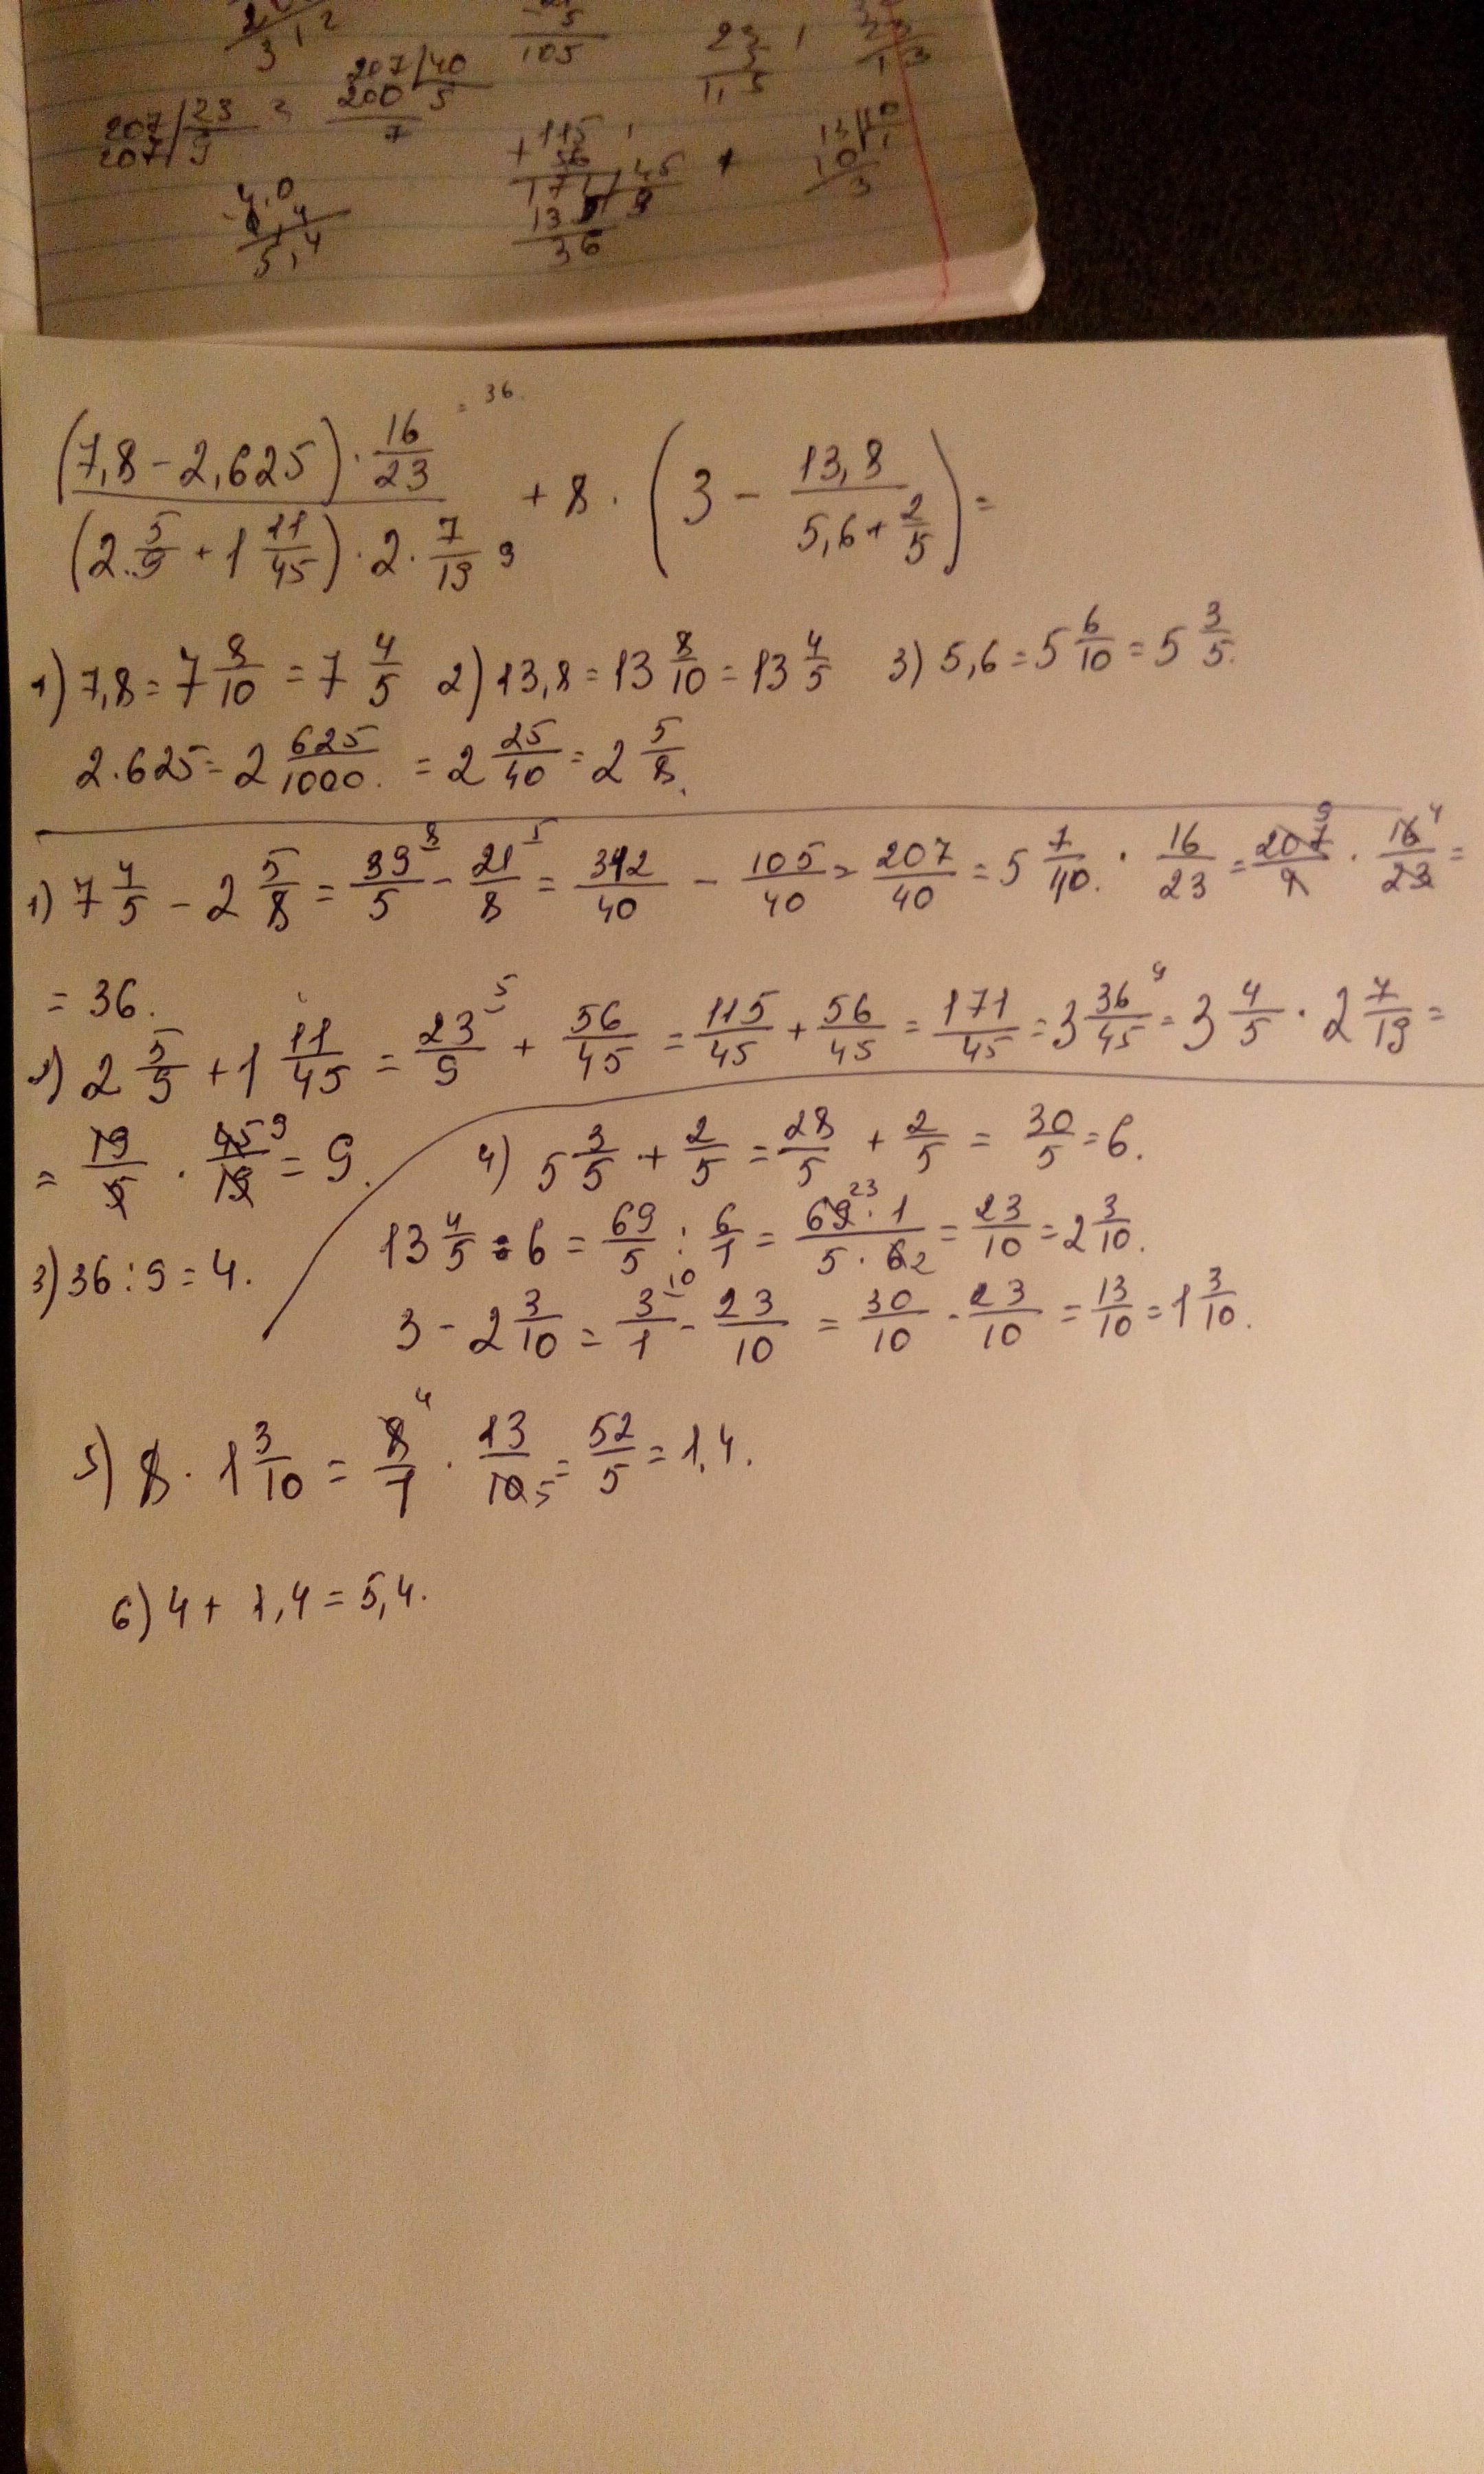 3,2
105
23
1,5
207/40
200 5
7
207/23
207 9
+115
56
171/45
135 3
36
13/10
10 1
3
4,0
1,4
5,4
= 36.
(7,8 - 2,625) · 16/23 / (2 5/9 + 1 11/45) · 2 · 7/19 9 + 8 · (3 - 13,8 / 5,6 + 2/5) =
1) 7,8 = 7 8/10 = 7 4/5 2) 13,8 = 13 8/10 = 13 4/5 3) 5,6 = 5 6/10 = 5 3/5.
2.625 = 2 625/1000. = 2 25/40 = 2 5/8.
1) 7 4/5 - 2 5/8 = 39/5 8 - 21/8 5 = 312/40 - 105/40 = 207/40 = 5 7/40. · 16/23 = 207/8 9 · 16/23 4 =
= 36.
2) 2 5/9 + 1 11/45 = 23/9 5 + 56/45 = 115/45 + 56/45 = 171/45 = 3 36/45 4 = 3 4/5 · 2 7/19 =
= 19/5 · 45/19 9 = 9.
3) 36 : 9 = 4.
4) 5 3/5 + 2/5 = 28/5 + 2/5 = 30/5 = 6.
13 4/5 : 6 = 69/5 : 6/1 = 69 23 · 1 / 5 · 6 2 = 23/10 = 2 3/10.
3 - 2 3/10 = 3/1 10 - 23/10 = 30/10 - 23/10 = 13/10 = 1 3/10.
5) 8 · 1 3/10 = 8/1 4 · 13/10 5 = 52/5 = 1,4.
6) 4 + 1,4 = 5,4.